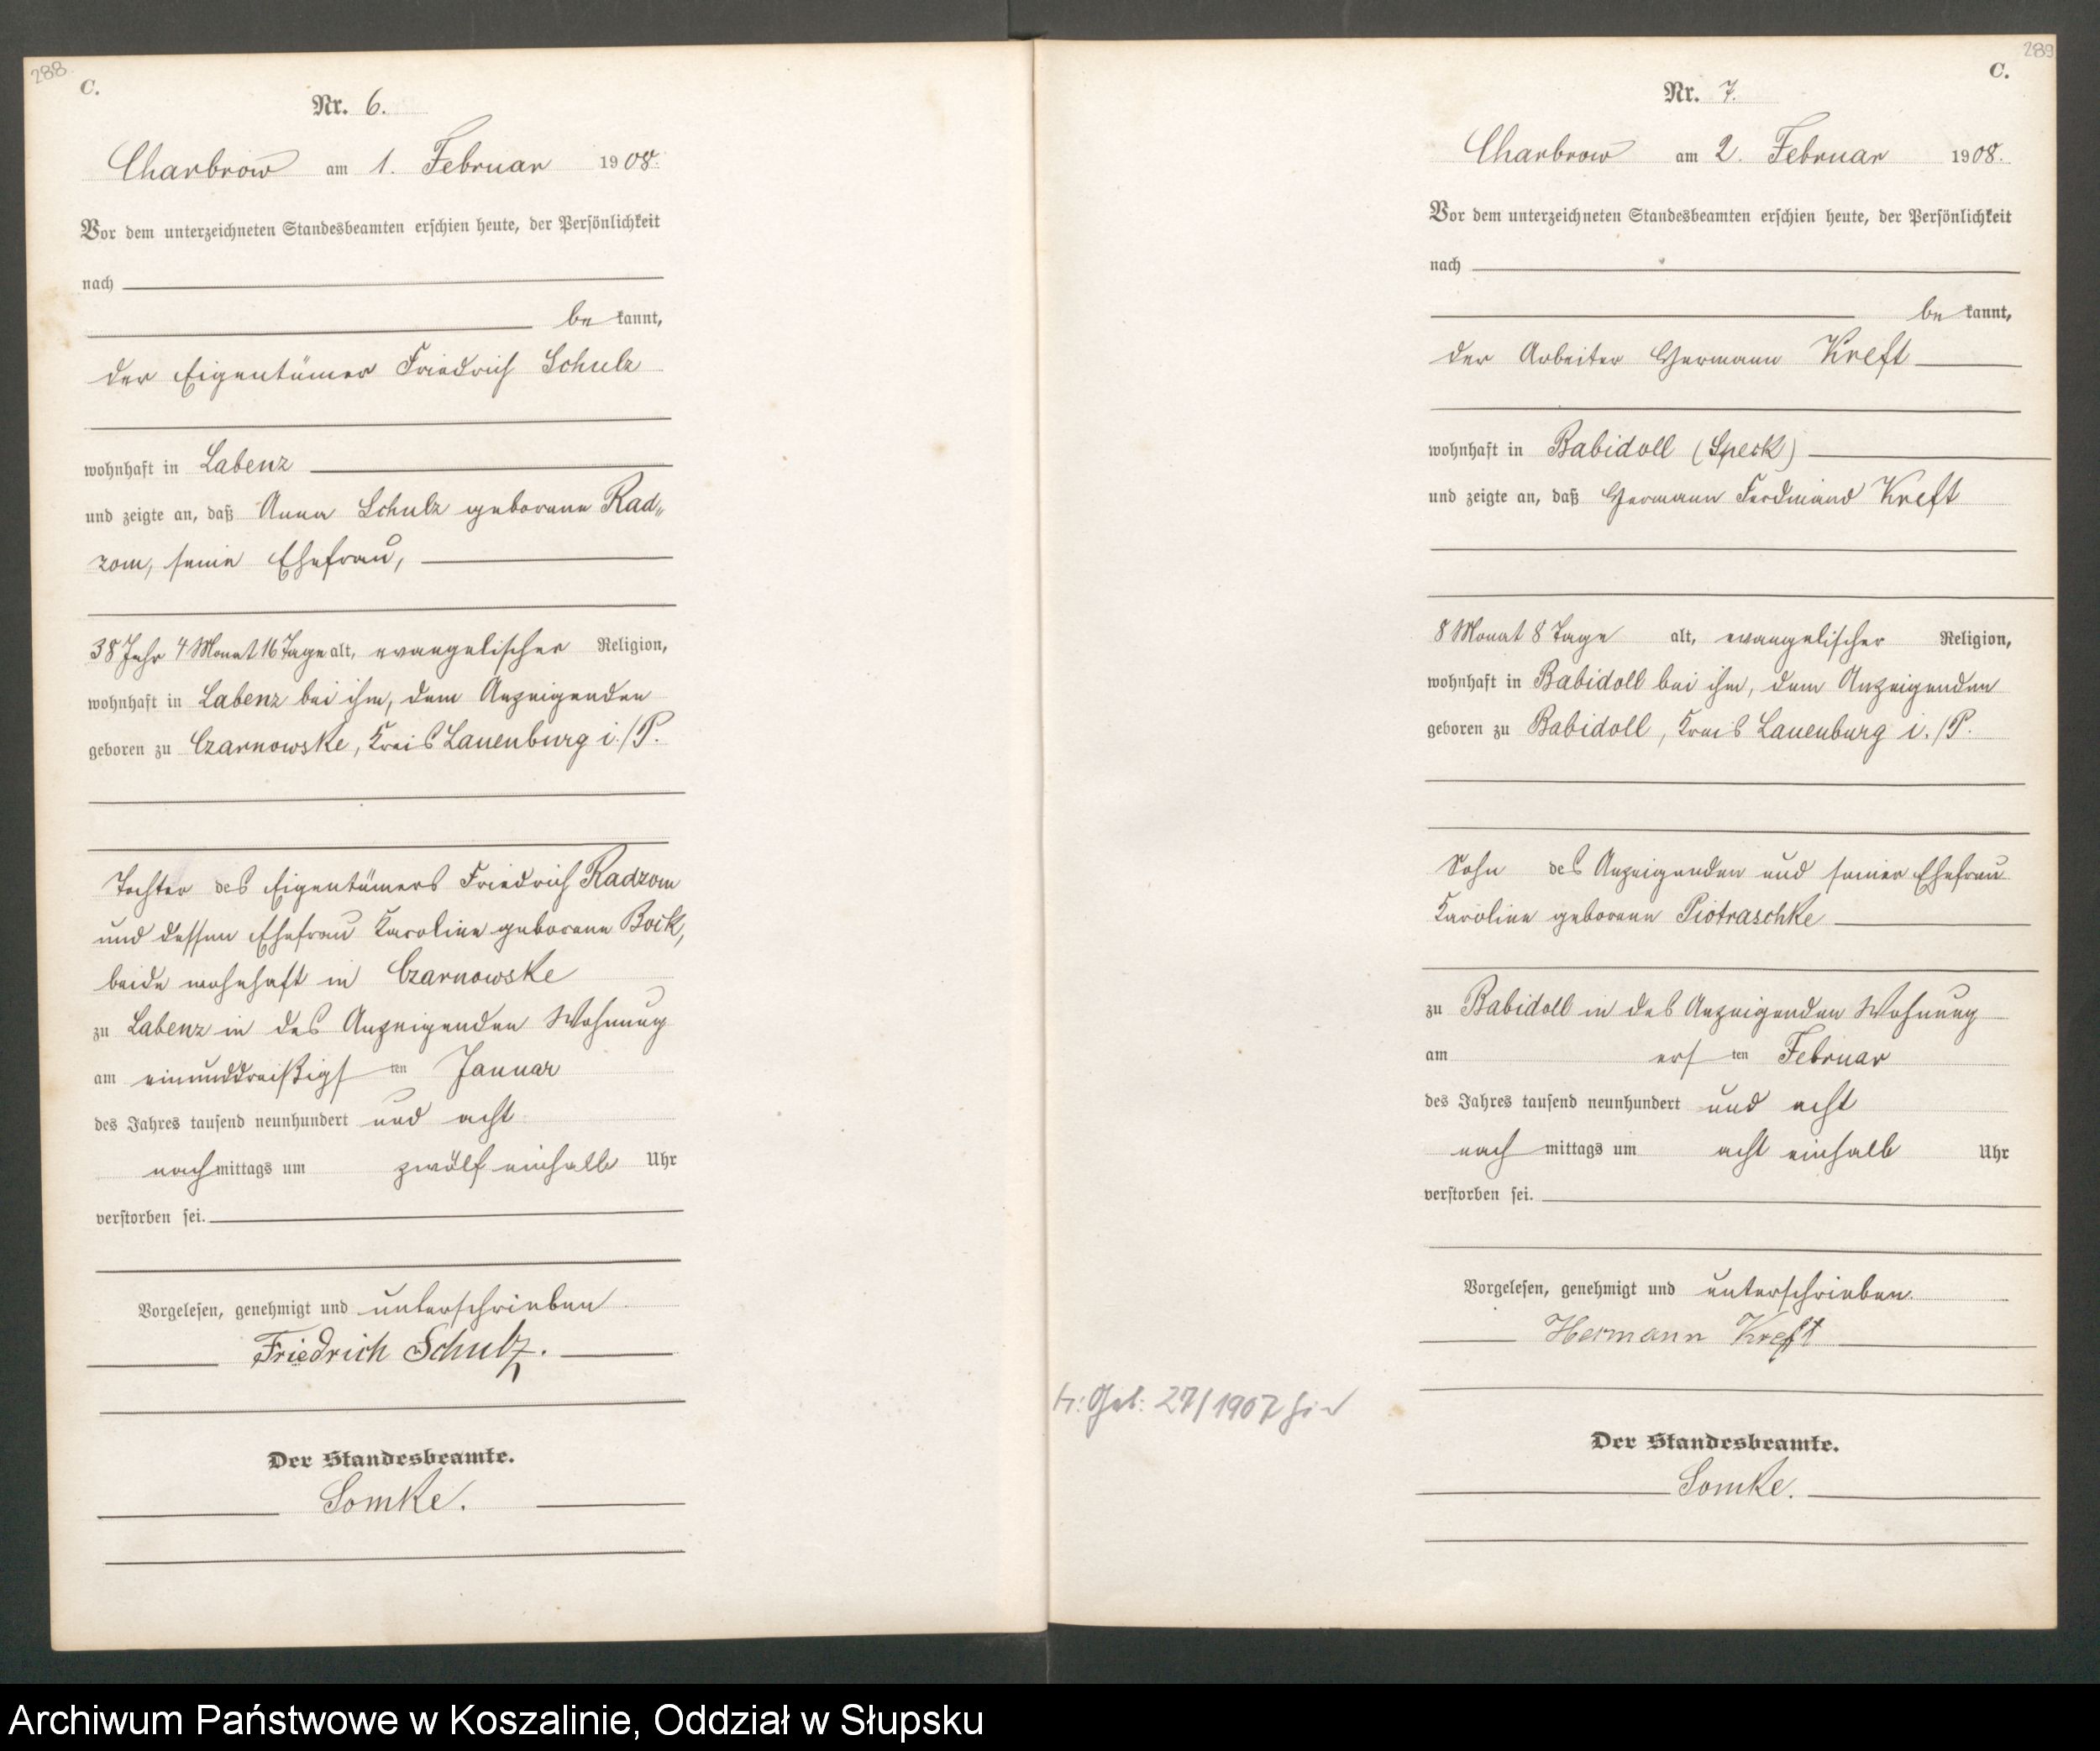 288
C.
Nr. 6.
Charbrow am 1. Februar 1908.
Vor dem unterzeichneten Standesbeamten erschien heute, der Persönlichkeit
nach
be kannt,
der Eigentümer Friedrich Schulz
wohnhaft in Labenz
und zeigte an, daß Anna Schulz geborene Rad„
zom, seine Ehefrau,
38 Jahr 4 Monat 16 Tage alt, evangelischer Religion,
wohnhaft in Labenz bei ihm, dem Anzeigenden
geboren zu Czarnowske, Kreis Lauenburg i./P.
Tochter des Eigentümers Friedrich Radzom
und dessen Ehefrau Karoline geborene Bock,
beide wohnhaft in Czarnowske
zu Labenz in des Anzeigenden Wohnung
am einunddreißigs ten Januar
des Jahres tausend neunhundert und acht
nach mittags um zwölf einhalb Uhr
verstorben sei.
Vorgelesen, genehmigt und unterschrieben
Friedrich Schulz.
Der Standesbeamte.
Somke.
289
C.
Nr. 7.
Charbrow am 2. Februar 1908.
Vor dem unterzeichneten Standesbeamten erschien heute, der Persönlichkeit
nach
be kannt,
der Arbeiter Hermann Kreft
wohnhaft in Babidoll (Speck)
und zeigte an, daß Hermann Ferdinand Kreft
8 Monat 8 Tage alt, evangelischer Religion,
wohnhaft in Babidoll bei ihm, dem Anzeigenden
geboren zu Babidoll, Kreis Lauenburg i./P.
Sohn des Anzeigenden und seiner Ehefrau
Karoline geborene Piotraschke
zu Babidoll in des Anzeigenden Wohnung
am ers ten Februar
des Jahres tausend neunhundert und acht
nach mittags um acht einhalb Uhr
verstorben sei.
Vorgelesen, genehmigt und unterschrieben.
Hermann Kreft
Geb: 27/1907 hier
Der Standesbeamte.
Somke.
Archiwum Państwowe w Koszalinie, Oddział w Słupsku